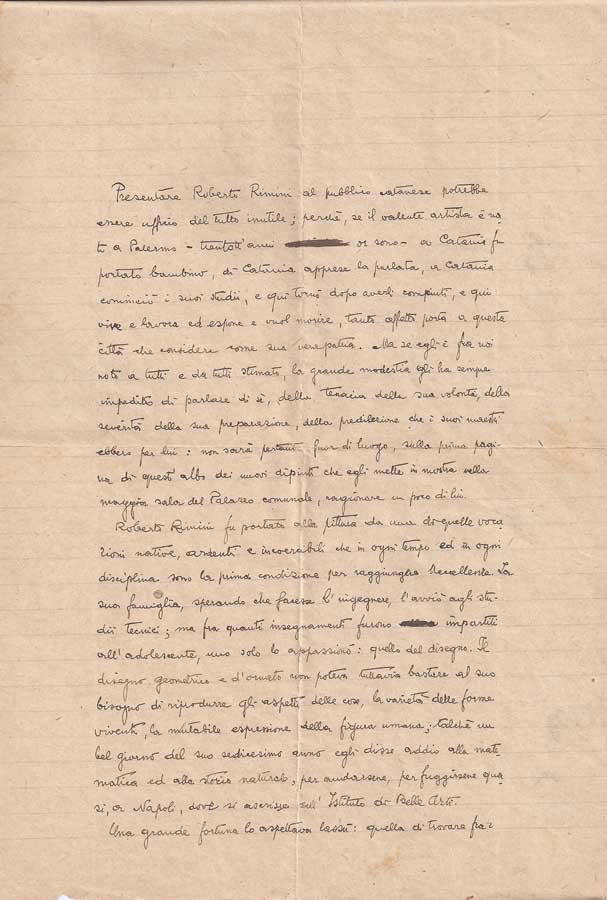 Presentare Roberto Rimini al pubblico catanese potrebbe
essere ufficio del tutto inutile; perchè, se il valente artista è na-
to a Palermo - trentott'anni or sono - a Catania fu
portato bambino, di Catania apprese la parlata, a Catania
cominciò i suoi studii, e qui tornò dopo averli compiuti, e qui
vive e lavora ed espone e vuol morire, tanto affetto porta a questa
città che considera come sua vera patria. Ma se egli è fra noi
noto a tutti e da tutti stimato, la grande modestia gli ha sempre
impedito di parlare di sè, della tenacia della sua volontà, della
severità della sua preparazione, della predilezione che i suoi maestri
ebbero per lui: non sarà pertanto fuor di luogo, sulla prima pagi-
na di quest'albo dei nuovi dipinti che egli mette in mostra nella
maggior sala del Palazzo comunale, ragionare un poco di lui.
Roberto Rimini fu portato alla pittura da una di quelle voca-
zioni native, ardenti e incoercibili che in ogni tempo ed in ogni
disciplina sono la prima condizione per raggiungere l'eccellenza. La
sua famiglia, sperando che facesse l'ingegnere, l'avviò agli stu-
dii tecnici; ma fra quanti insegnamenti furono impartiti
all'adolescente, uno solo lo appassionò: quello del disegno. Il
disegno geometrico e d'ornato non poteva tuttavia bastare al suo
bisogno di riprodurre gli aspetti delle cose, la varietà delle forme
viventi, la mutabile espressione della figura umana; talchè un
bel giorno del suo sedicesimo anno egli disse addio alla mate-
matica ed alla storia naturale, per andarsene, per fuggirsene qua-
si, a Napoli, dove si ascrisse all'Istituto di Belle Arti.
Una grande fortuna lo aspettava lassù: quella di trovare fra i